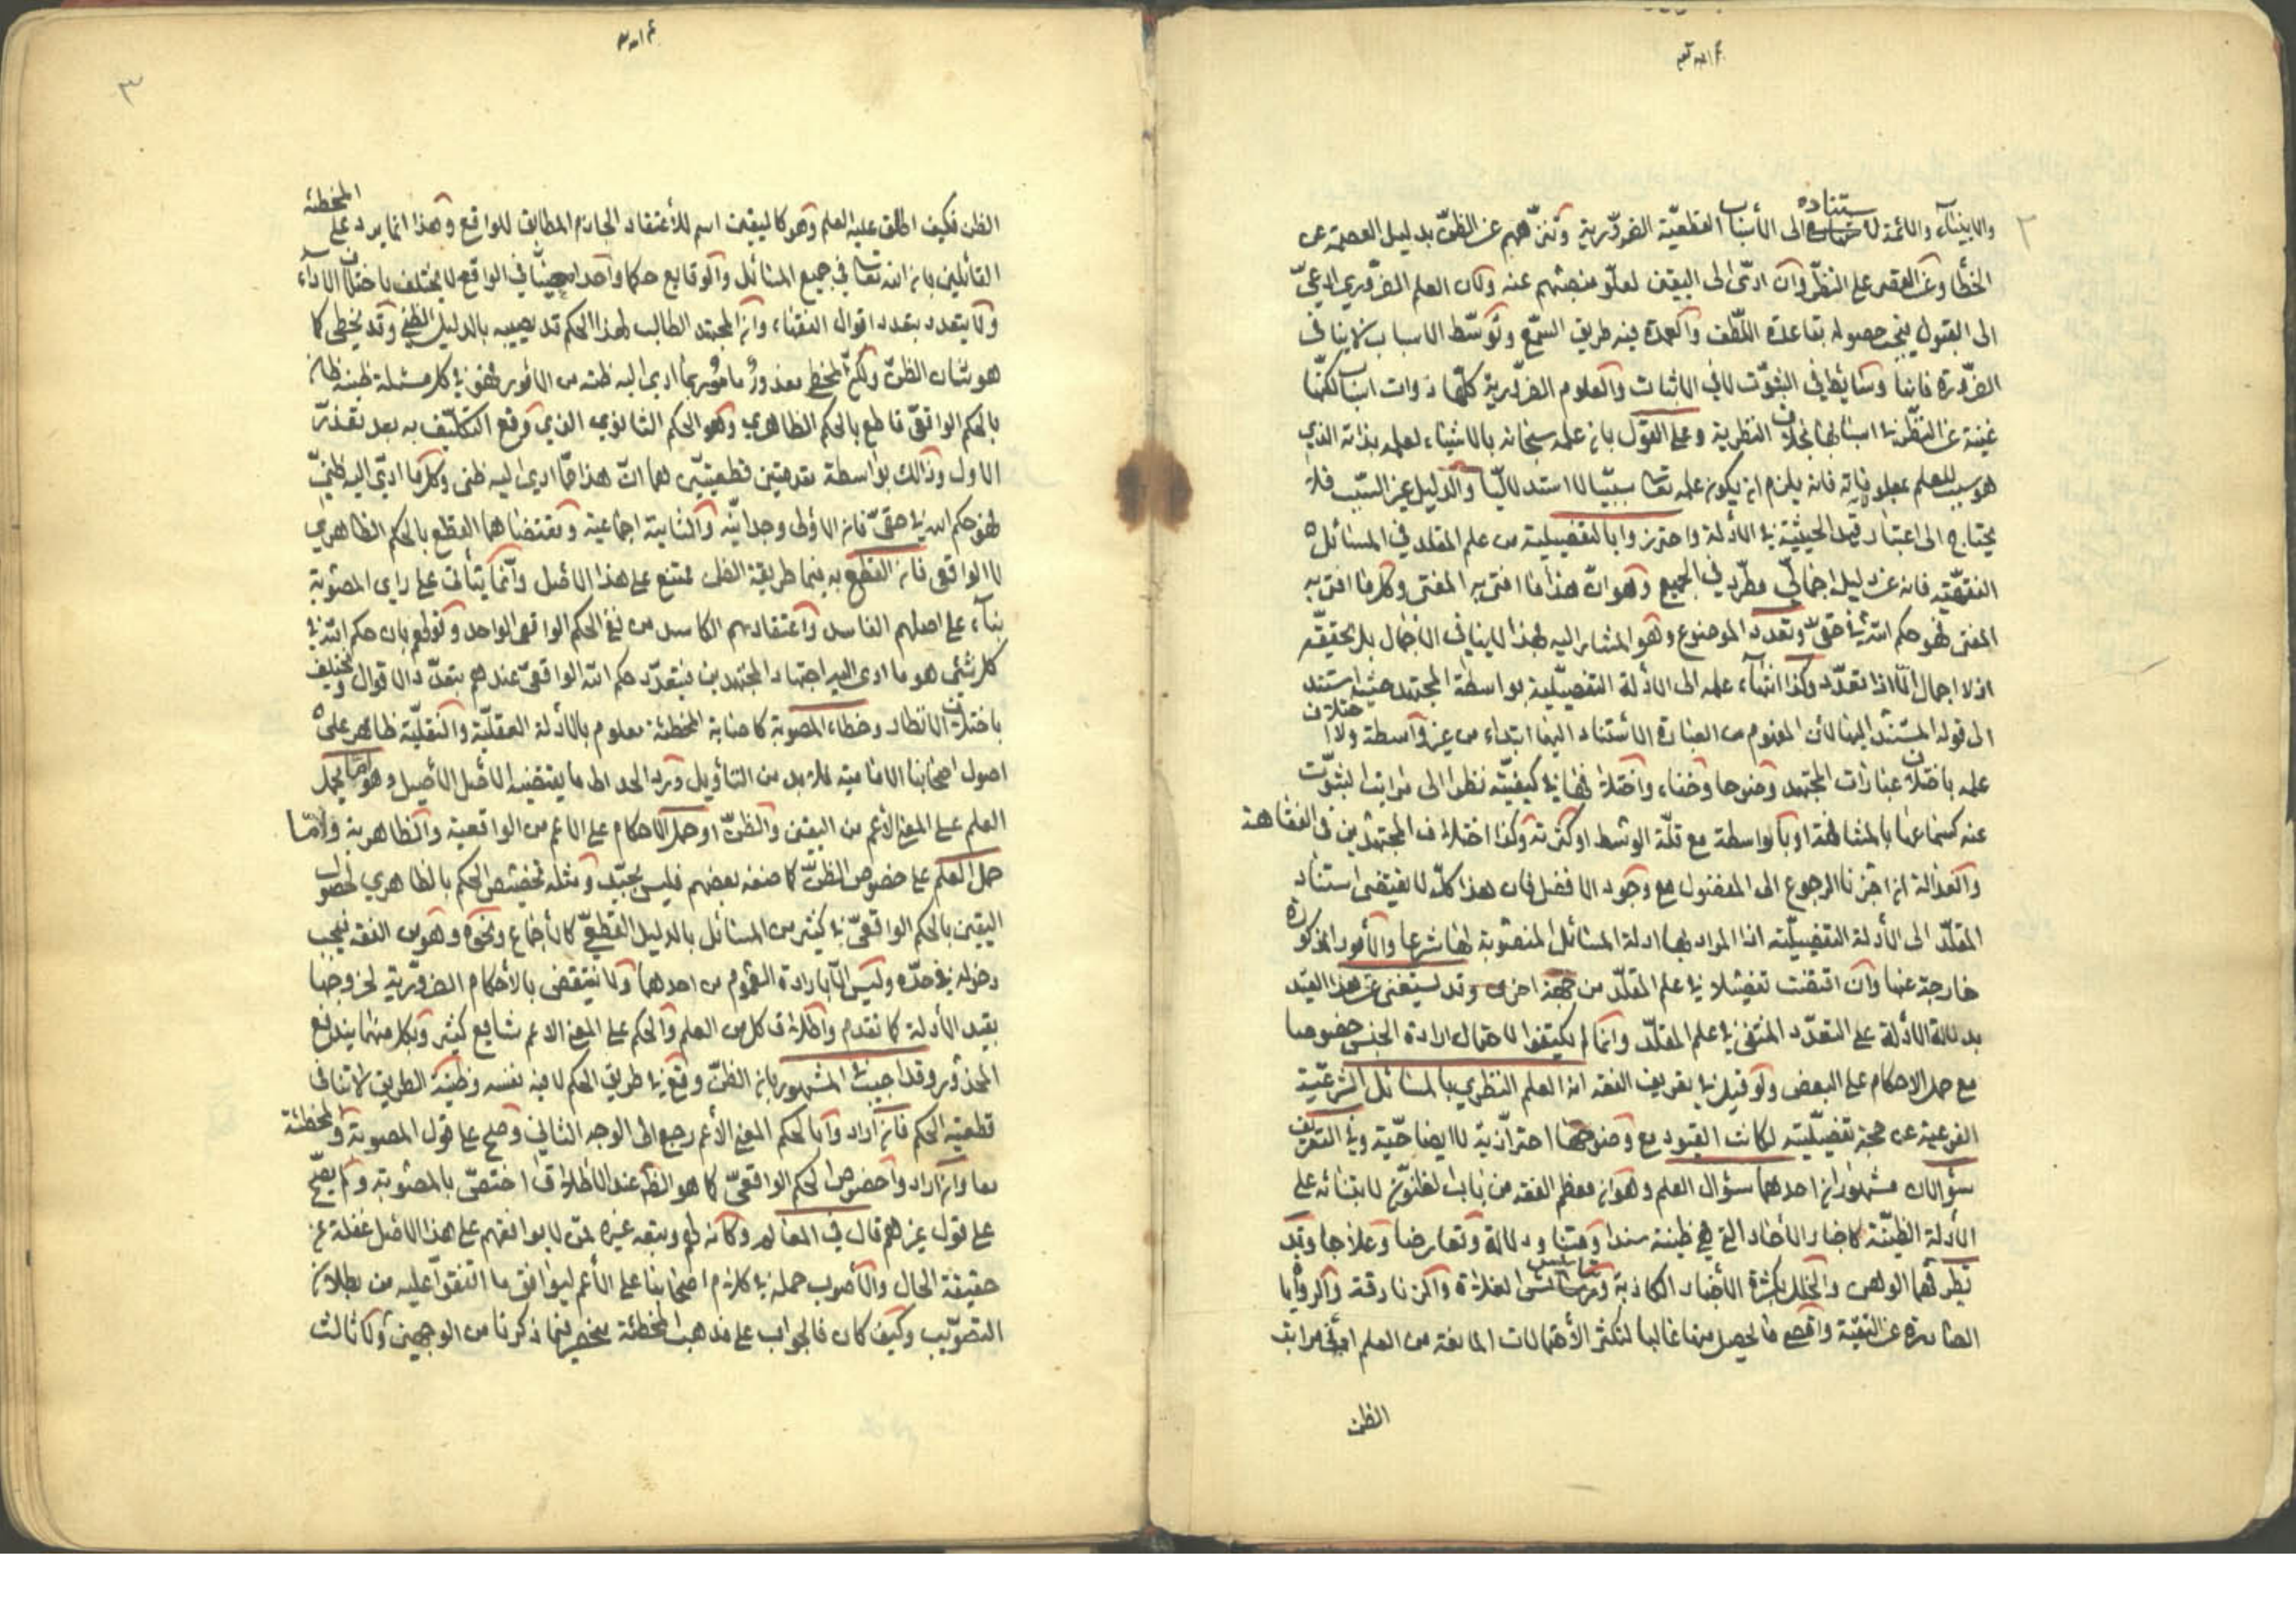 ٢
والانبياء والائمة لاستناده الى الأسباب القطعيّة الضروريّة وتنزّههم عن الظنّ بدليل العصمة عن
الخطأ وعن القصر على النظر وان ادّى الى اليقين لعلوّ منصبهم عنه وكان العلم الضروري
الى القبول يجب حصوله بقاعدة اللّطف والعمدة فيه طريق السمع وتوسّط الاسباب لا ينافى
الضّرورة فانها وسائط في الثبوت لا في الاثبات والعلوم الضروريّة كلّها ذوات اسباب لكنّها
غنية عن النظر في اسبابها بخلاف النظرية وعلى القول بان علمه سبحانه بالاشياء لعلمه بذاته الذي
هو سبب للعلم بمعلولاته فانه يلزم ان يكون علمه تعا سببيّا لا استدلاليّا والدليل غير السبب فلا
يحتاج الى اعتبار قيد الحيثيّة في الأدلة واحترزوا بالتفصيلية من علم المقلد في المسائل
الفقهيّة فانه عن دليل اجمالي مطّرد في الجميع وهو انّ هذا ما افتى به المفتى وكل ما افتى به
المفتى فهو حكم الله في حقي وتعدد الموضوع وهو المشار اليه بهذا لا ينافي الاجمال بل يحققّه
اذ لا اجمال الّا اذا تعدّد وكذا انتهاء علمه الى الأدلة التفصيلية بواسطة المجتهد حيث استند
الى قوله المستند اليها لأن المفهوم من العبارة الأستناد اليها ابتداء من غير واسطة ولا اختلاف
علمه باختلاف عبارات المجتهد وضوحا وخفاء واختلافها في كيفيّته نظرا الى مراتب الثبوت
عنه كسماعها بالمشافهة او بالواسطة مع قلّة الوسط او كثرته وكذا اختلاف المجتهدين في الفقاهة
والعدالة ان اجزنا الرجوع الى المفضول مع وجود الافضل فان هذا كلّه لا يقتضى استناد
المقلّد الى الأدلة التفصيليّة اذ المراد بها ادلة المسائل المنصوبة لها شرعا والأمور المذكورة
خارجة عنها وان اقتضت تفصيلا في علم المقلّد من جهة اخرى وقد يستغنى عن هذا القيد
بدلالة الأدلة على التعدّد المنتفى في علم المقلّد وانما لم يكتفوا لاحتمال ارادة الجنس خصوصا
مع حمل الاحكام على البعض ولو قيل في تعريف الفقه انه العلم النظري بالمسائل الشرعيّة
الفرعية عن حجة تفصيليّة لكانت القيود مع وضوحها احترازيّة لا ايضاحيّة وفي التعريف
سؤالان مشهوران احدهما سؤال العلم وهو ان معظم الفقه من باب الظنون لابتنائه على
الأدلة الظنيّة كاخبار الأحاد التي هي ظنية سندا ومتنا ودلالة وتعارضا وعلاجا وقد
تطرقها الوهن والخلل بكثرة الأخبار الكاذبة ودسائس الغلاة والزنادقة والروايا
الصادرة عن التقيّة واقصى ما يحصل منها غالبا لتكثر الأحتمالات المانعة من العلم مراتب
الظن
٣
الظن فكيف اطلق عليه العلم وهو كاليقين اسم للأعتقاد الجازم المطابق للواقع وهذا انما يرد على المخطئة
القائلين بان لله تعا في جميع المسائل والوقايع حكما واحدا معيّنا في الواقع لا يختلف باختلاف الآراء
ولا يتعدد بتعدد اقوال الفقهاء وان المجتهد الطالب لهذا الحكم قد يصيبه بالدليل الظني وقد يخطى كما
هو شان الظنّ ولكنّ المخطى معذور مامور بما ادى اليه ظنه من الأمور فهو في كل مسئلة ظنية ظان
بالحكم الواقعى قاطع بالحكم الظاهري وهو الحكم الثانوي الذي وقع التكليف به بعد تعذّر
الاول وذلك بواسطة مقدمتين قطعيّتين هما انّ هذا ممّا ادى اليه ظنى وكل ما ادّى اليه ظنّي
فهو حكم الله في حقّي فان الاولى وجدانيّة والثانية اجماعيّة ومقتضاهما القطع بالحكم الظاهري
لا الواقعى فان القطع به فيما طريقة الظن ممتنع على هذا الأصل وانّما يتأتى على راى المصوّبة
بناء على اصلهم الفاسد واعتقادهم الكاسد من نفي الحكم الواقعى الواحد وقولهم بان حكم الله في
كل شئ هو ما ادى اليه اجتهاد المجتهدين فيتعدّد حكم الله الواقعي عندهم بتعدّد الاقوال ويختلف
باختلاف الانظار وخطاء المصوبة كاصابة المخطئة معلوم بالأدلة العقليّة والنقليّة ظاهر على
اصول اصحابنا الامامية فلا بد من التأويل وردّ الحد الى ما يقتضيه الأصل الأصيل وهو امّا بحمل
العلم على المعنى الأعم من اليقين والظنّ او حمل الاحكام على الاعم من الواقعية والظاهرية وامّا
حمل العلم على خصوص الظنّ كما صنفه بعضهم فليس بجيّد ومثله تخصيص الحكم بالظاهري لحصول
اليقين بالحكم الواقعيّ في كثير من المسائل بالدليل القطعيّ كالأجماع ونحوه وهو من الفقه فيجب
دخوله في حدّه وليس الّا بارادة العموم من احدهما ولا ينتقض بالأحكام الضروريّة لخروجها
بقيد الأدلة كما تقدم واطلاق كل من العلم والحكم على المعنى الاعم شايع كثير وبكل منهما يندفع
المحذور وقد اجيب في المشهور بان الظنّ وقع في طريق الحكم لا فيه نفسه وظنيّة الطريق لا تنافى
قطعية الحكم فان اراد وا بالحكم المعنى الأعم رجع الى الوجه الثاني وصلح على قول المصوبة والمخطئة
معا وان ارادوا خصوص الحكم الواقعيّ كما هو الظ عند الأطلاق اختصّ بالمصوّبة ولم يصحّ
على قول غيرهم قال في المعالم وكانه لهم وتبعه غيره ممّن لا يوافقهم على هذا الأصل غفلة عن
حقيقة الحال والأصوب حمله في كلام اصحابنا على الأعم ليوافق ما اتفقوا عليه من بطلان
التصويب وكيف كان فالجواب على مذهب المخطئة منحصر فيما ذكرنا من الوجهين ولا ثالث